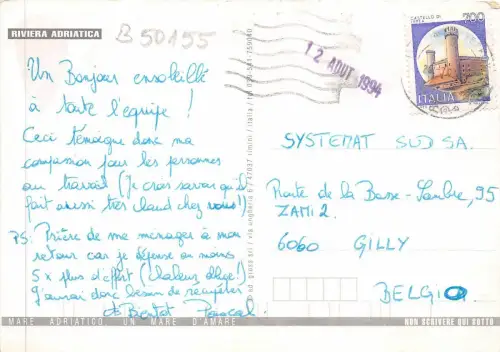 RIVIERA ADRIATICA
B 50155
Un Bonjour ensoleillé
à toute l'équipe !
Ceci témoigne donc ma
compassion pour les personnes
au travail (Je crois savoir qu'il
fait aussi très chaud chez vous !)
PS: Prière de me ménager à mon
retour car je dépense au moins
5 x plus d'effort (chaleur oblige !)
J'aurai donc besoin de récupérer
à Bientôt Pascal
MARE ADRIATICO UN MARE D'AMARE
12 AOUT 1994
CASTELLO DI
IVREA
700
ITALIA
SYSTEMAT SUD SA.
Route de la Basse-Sambre, 95
ZAMI 2.
6060 GILLY
BELGIO
NON SCRIVERE QUI SOTTO